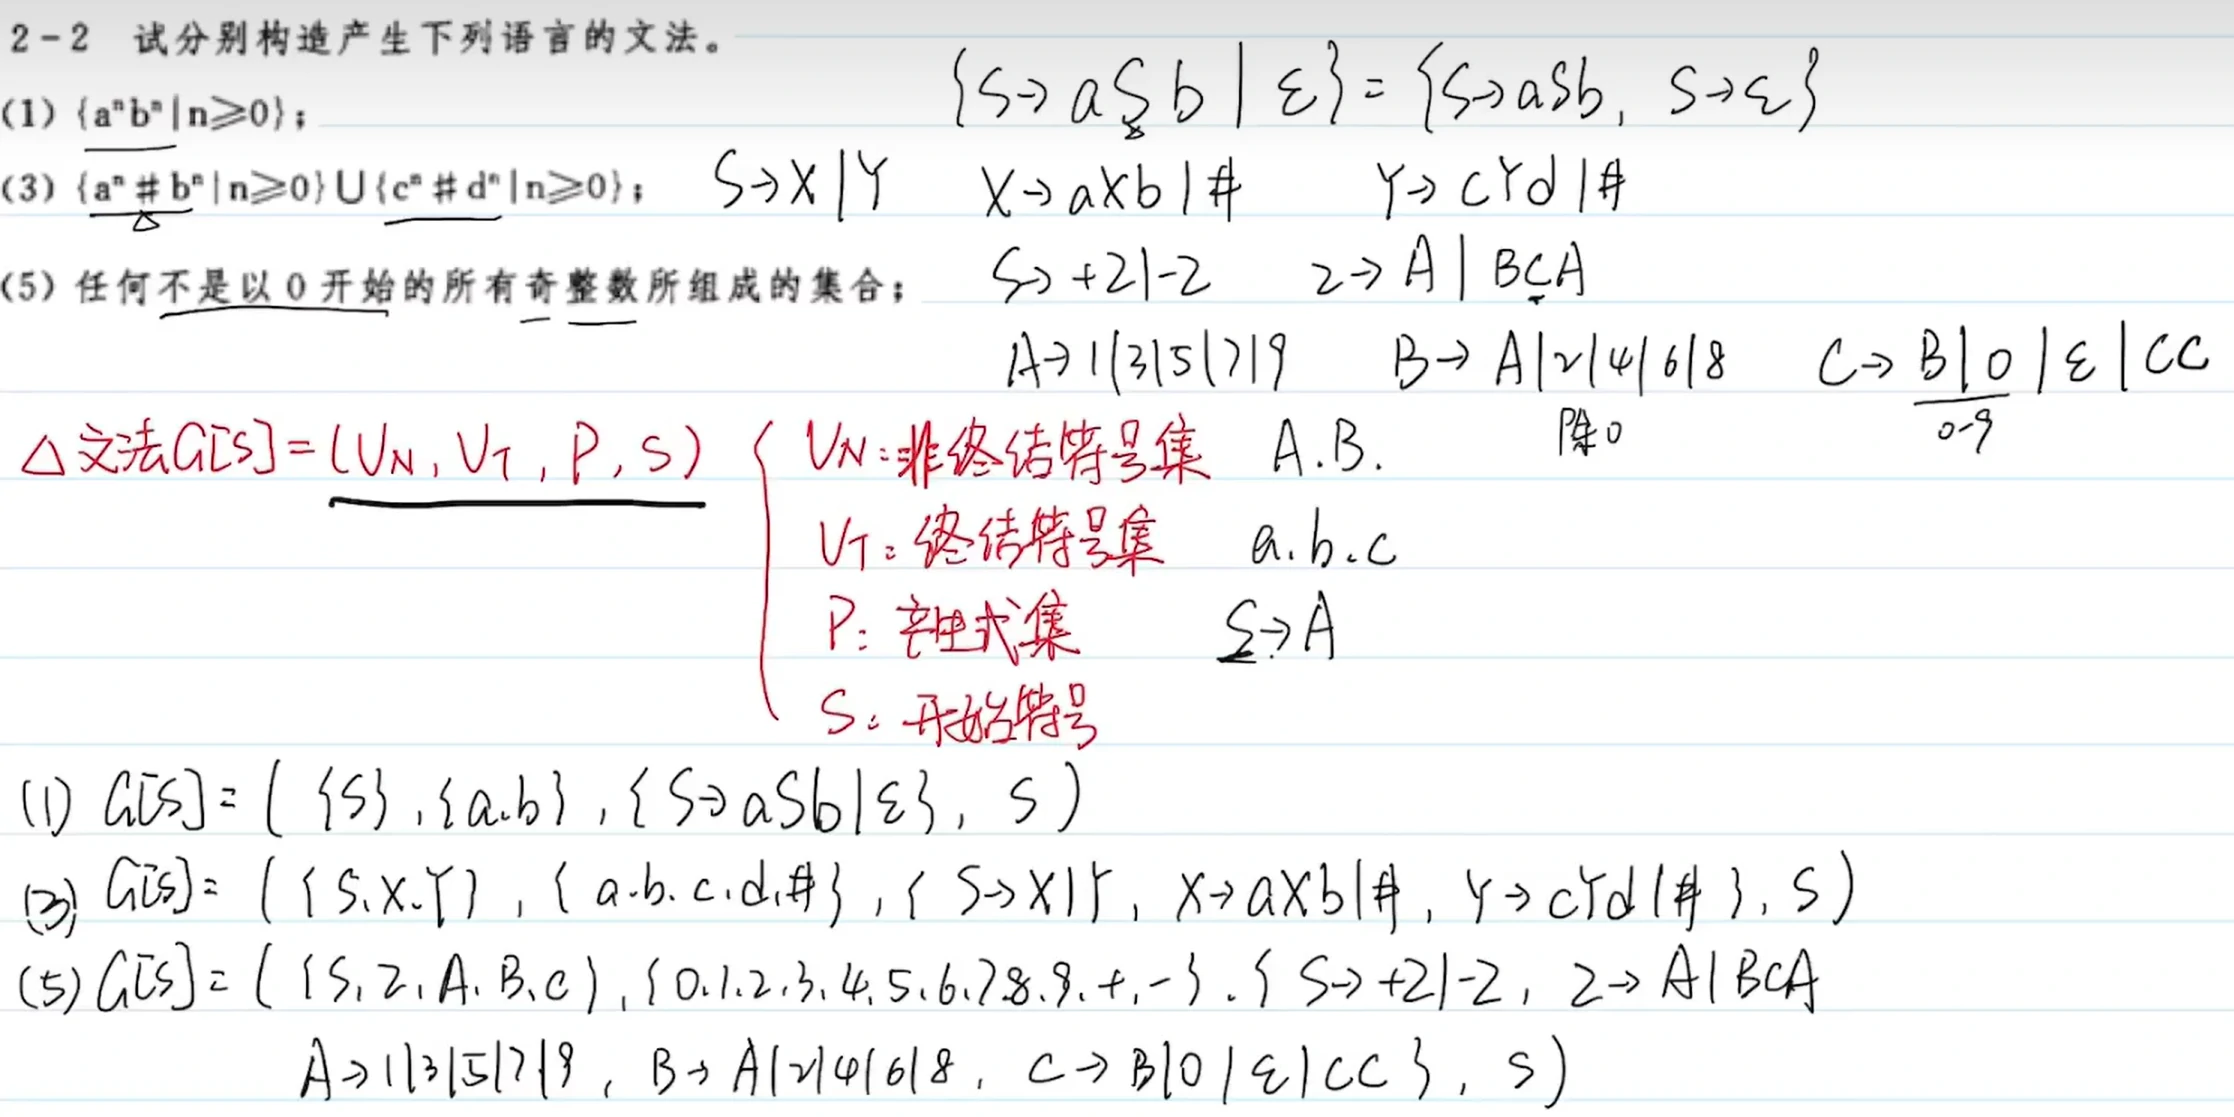 2-2 试分别构造产生下列语言的文法。
{S→aSb|ε}={S→aSb, S→ε}
(1) {aⁿbⁿ|n≥0};
(3) {aⁿ#bⁿ|n≥0}∪{cⁿ#dⁿ|n≥0}; S→X|Y X→aXb|# Y→cYd|#
(5) 任何不是以0开始的所有奇整数所组成的集合; S→+Z|-Z Z→A|BCA
A→1|3|5|7|9 B→A|2|4|6|8 C→B|0|ε|CC
除0 0-9
△文法G[S]=(VN, VT, P, S) { VN:非终结符号集 A.B.
VT:终结符号集 a.b.c
P:产生式集 S→A
S:开始符号
(1) G[S]=({S},{a.b},{S→aSb|ε}, S)
(3) G[S]=({S.X.Y},{a.b.c.d.#},{S→X|Y, X→aXb|#, Y→cYd|#}, S)
(5) G[S]=({S.Z.A.B.C},{0.1.2.3.4.5.6.7.8.9.+.-}.{S→+Z|-Z, Z→A|BCA
A→1|3|5|7|9, B→A|2|4|6|8, C→B|0|ε|CC}, S)